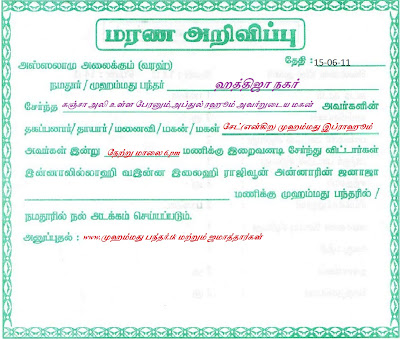 மரண அறிவிப்பு
தேதி : 15-06-11
அஸ்ஸலாமு அலைக்கும் (வரஹ்)
நமதூர் / முஹம்மது பந்தர் ஹத்திஜா நகர்
சேர்ந்த கஞ்சா அலி உன்ன போனும் அப்துல் ரஹூம் அவர்றுடைய மகன் அவர்களின்
தகப்பனார்/தாயார் / மனைவி / மகன் / மகள் சேட் என்கிற முஹம்மது இப்ராஹூம்
அவர்கள் இன்று நேற்று மாலை 6.pm மணிக்கு இறைவனடி சேர்ந்து விட்டார்கள்
இன்னாலில்லாஹி வஇன்ன இலைஹி ராஜிவூன் அன்னாரின் ஜனாஜா
மணிக்கு முஹம்மது பந்தரில் /
நமதூரில் நல் அடக்கம் செய்யப்படும்.
அனுப்புதல் : www.முஹம்மது பந்தர்.tk மற்றும் ஜமாத்தார்கள்